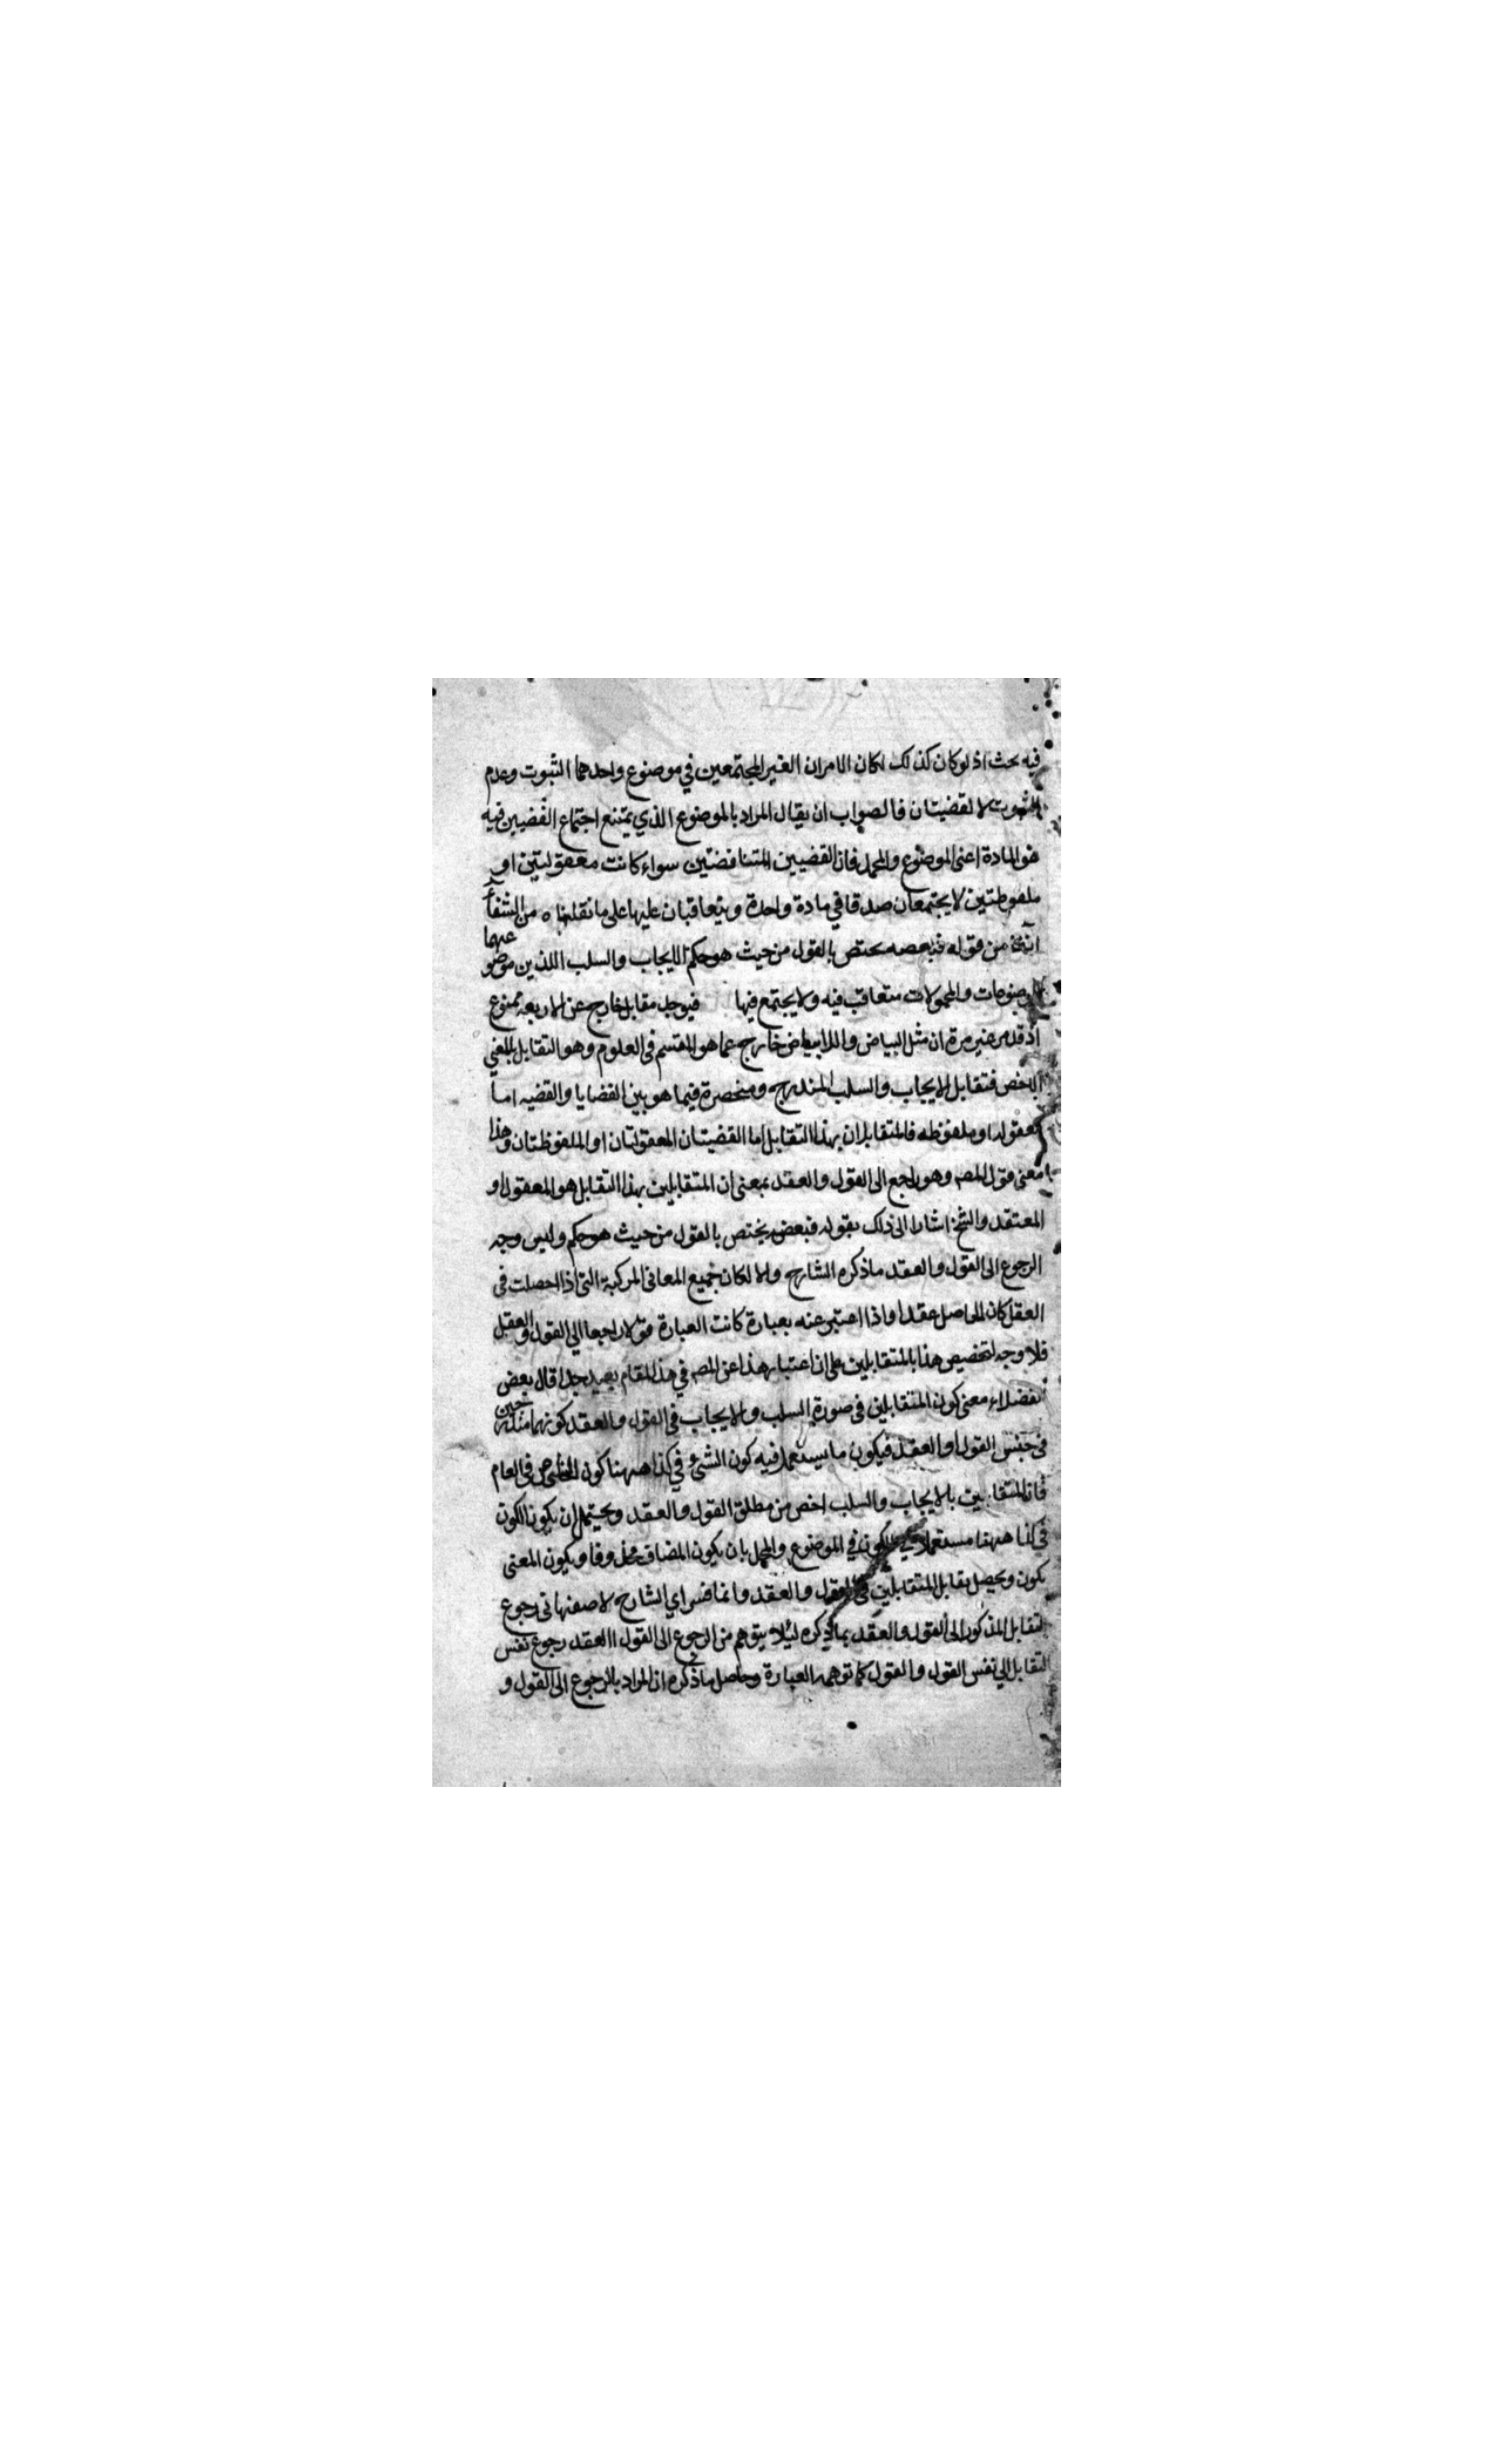 فيه بحث اذ لو كان كذلك لكان الامران الغير المجتمعين في موضوع واحد هما الثبوت وعدم
الثبوت لا لقضيتان فالصواب ان يقال المراد بالموضوع الذي يمتنع اجتماع القضيين فيه
هو المادة اعنى الموضوع والمحمل فان القضيين المتناقضتين سواء كانت معقولتين او
ملفوظتين لا يجتمعان صدقا في مادة واحدة ويتعاقبان عليها على ما نقلناه من الشفأ
من قوله فبعضه يختص بالقول من حيث هو حكم الايجاب والسلب اللذين موضوعهما
الموضوعات والمحمولات متعاقب فيه ولا يجتمع فيها فيوجد مقابل خارج عن الاربعه ممنوع
اذ قد مر غير مرة ان مثل البياض واللابياض خارج عما هو المقسم فى العلوم وهو التقابل بالمعني
الاخص فتقابل الايجاب والسلب المندرج ومنحصرة فيما هو بين القضايا والقضيه اما
معقوله او ملفوظه فالمتقابلان بهذا التقابل اما القضيتان المعقولتان او الملفوظتان وهذا
معنى قول المص وهو راجع الى القول والعقد بمعنى ان المتقابلين بهذا التقابل هو المعقول او
المعتقد والشخ اشار الى ذلك بقوله فبعضه يختص بالقول من حيث هو حكم وليس وجه
الرجوع الى القول والعقد ماذكره الشارح والا لكان جميع المعانى المركبة التى اذا احصلت فى
العقل كان الحاصل عقدا واذا اعتبر عنه بعبارة كانت العبارة قولا راجعا الي القول والعقل
فلا وجه لتخصيص هذا بالمتقابلين على ان اعتبار هذا عن المص في هذا المقام بعيد جدا قال بعض
الفضلاء معنى كون المتقابلين فى صورة السلب والايجاب فى القول والعقد كونهما مندرجين
فى جنس القول او العقد فيكون ما يستعمل فيه كون الشئ في كذا ههنا كون الخاص فى العام
فان المتقابلين بالايجاب والسلب اخص من مطلق القول والعقد ويحتمل ان يكون الكون
في كذا ههنا مستعملا في الكون في الموضوع والمحمل بان يكون المضاف محذوفا ويكون المعنى
يكون ويحصل تقابل المتقابلين في القول والعقد وانما فسر اي الشارح لاصفنهانى رجوع
التقابل المذكور الى القول والعقد بما ذكره ليلا يتوهم من الرجوع الى القول االعقد رجوع نفس
التقابل الي نفس القول والقول كما توهمه العبارة وحاصل ماذكره ان المراد بالرجوع الى القول و